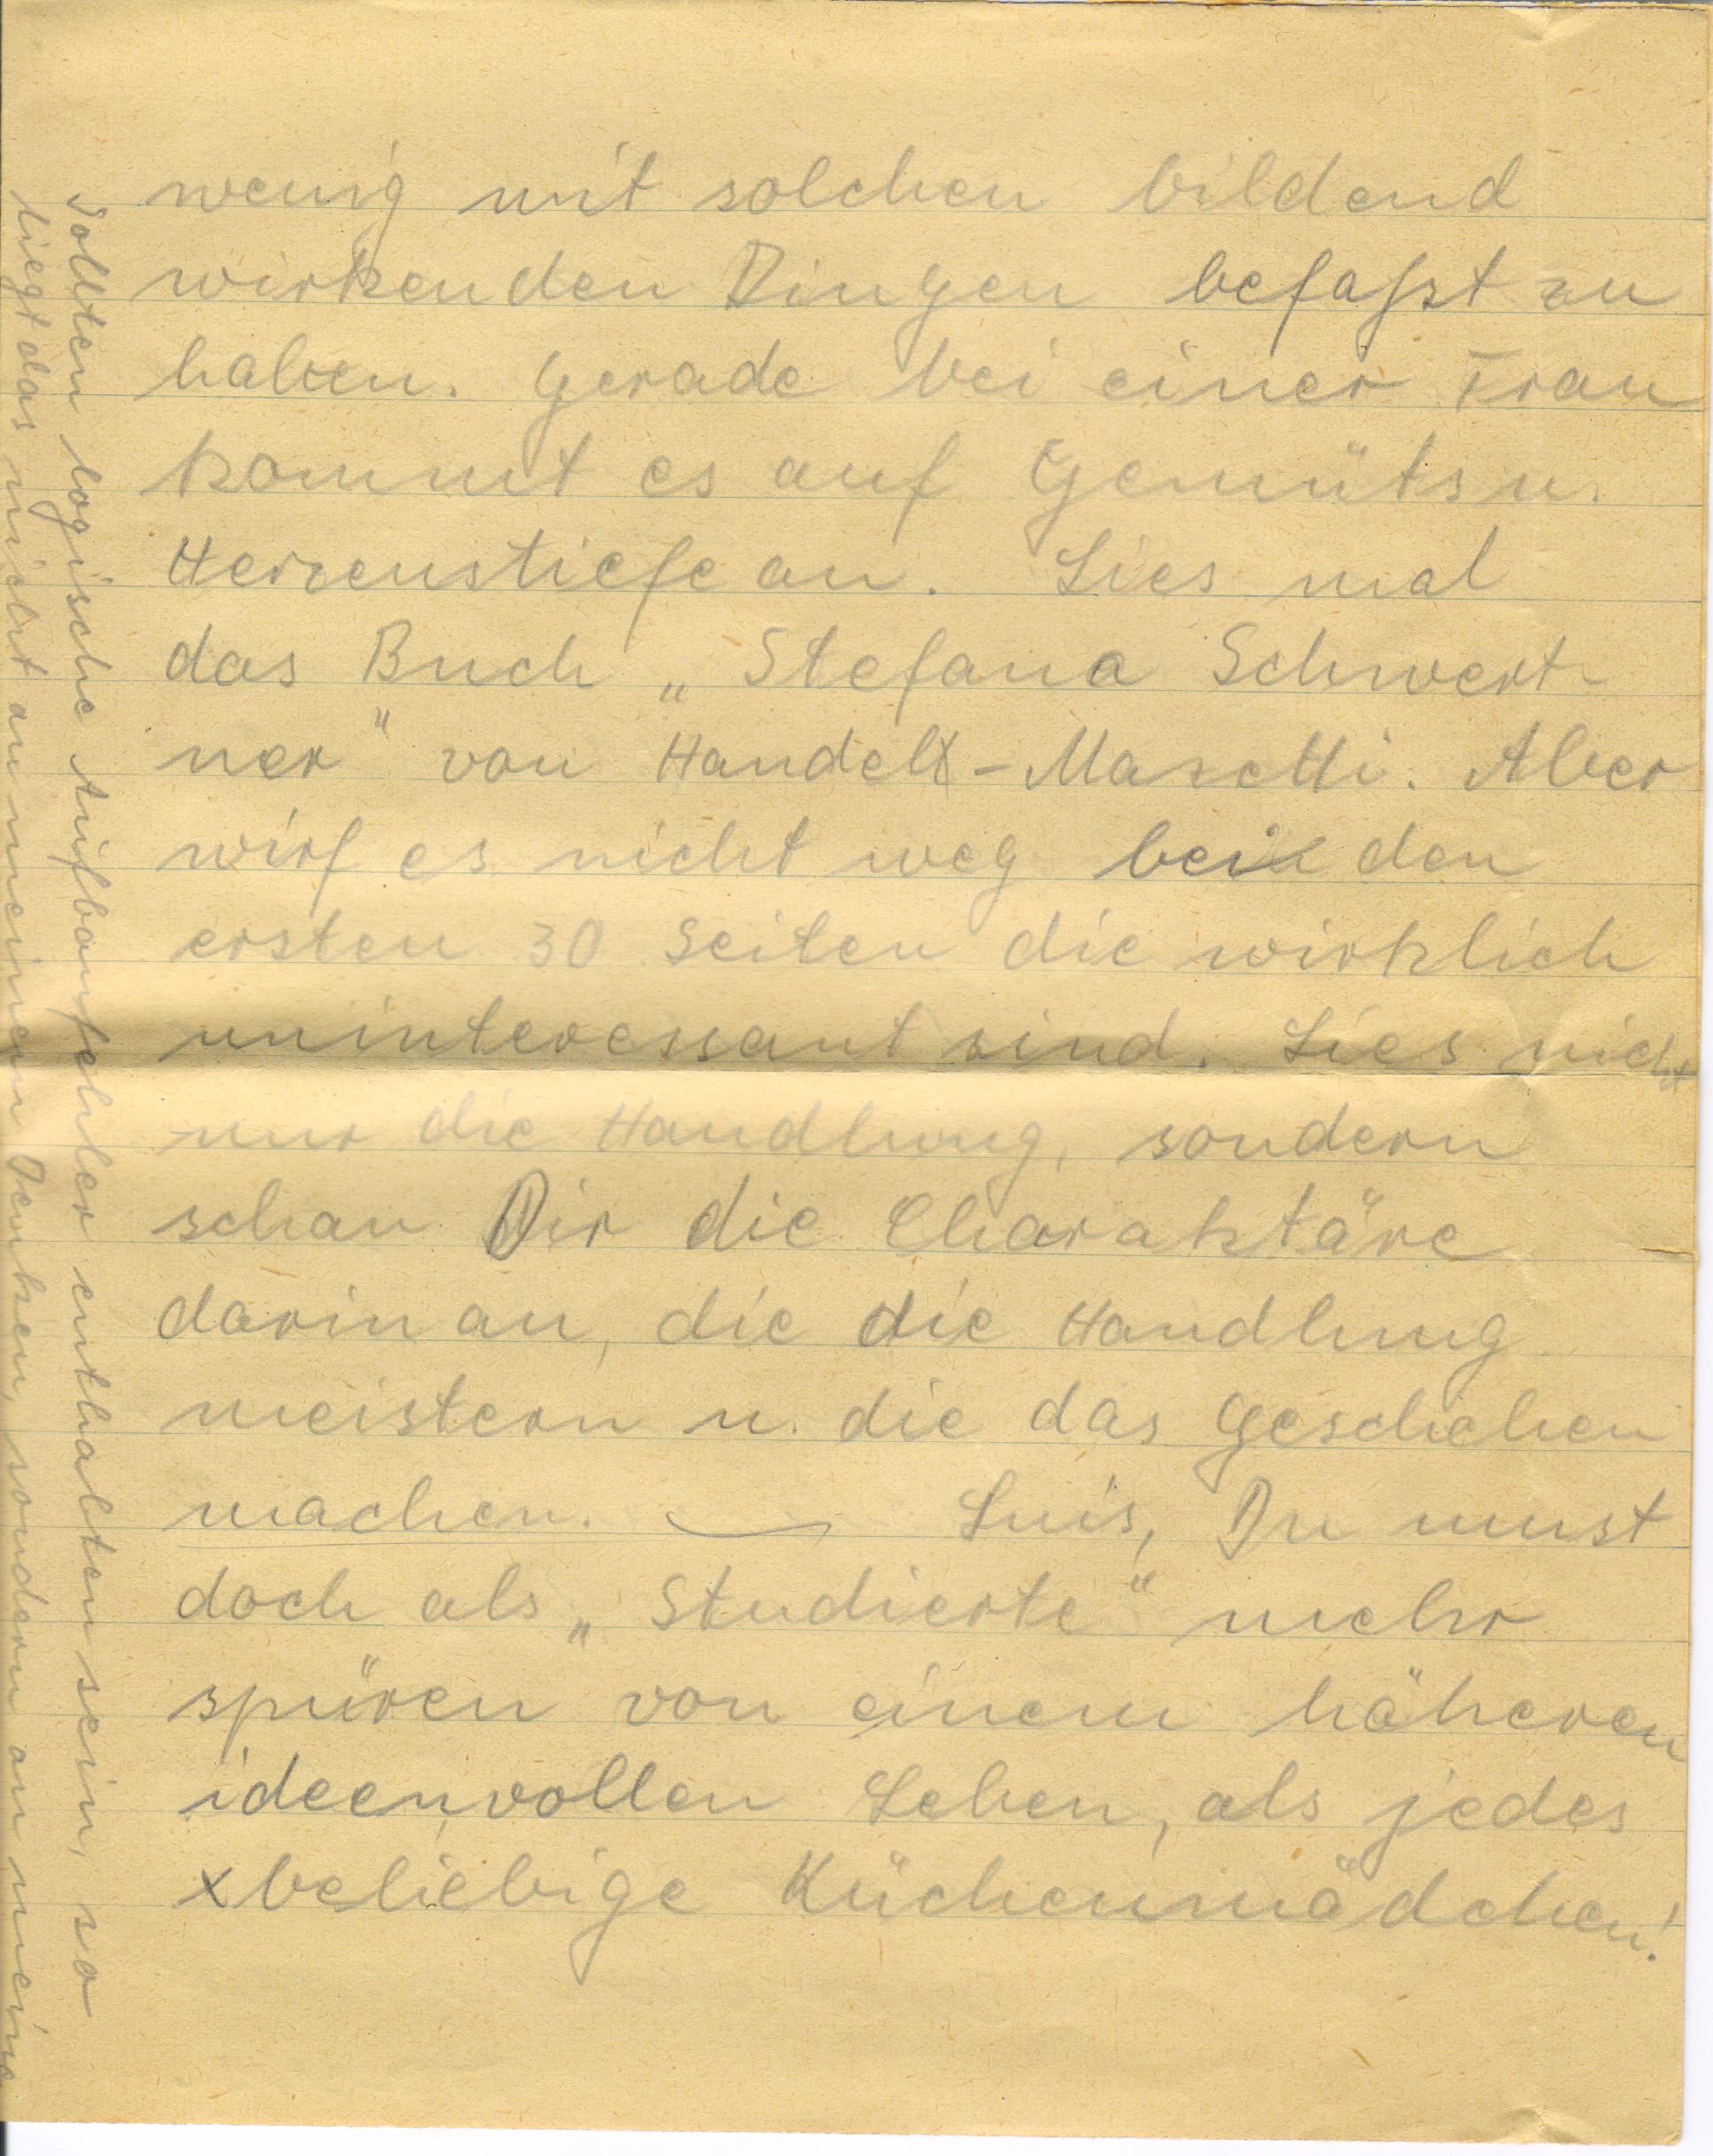 wenig mit solchen bildend
wirkenden Dingen befaßt zu
haben. Gerade bei einer Frau
kommt es auf Gemüts u.
Herzenstiefe an. Lies mal
das Buch „Stefana Schwert-
ner" von Handel-Mazetti. Aber
wirf es nicht weg bei den
ersten 30 Seiten die wirklich
uninteressant sind. Lies nicht
nur die Handlung, sondern
schau Dir die Charaktäre
darin an, die die Handlung
meistern u. die das Geschehen
machen. — Luis, Du must
doch als „Studierte" mehr
spüren von einem höheren
ideenvollen Leben, als jedes
x beliebige Küchenmädchen!
Sollten logische Aufbaufehler enthalten sein, so
liegt das nicht an meinem Denken, sondern an meine